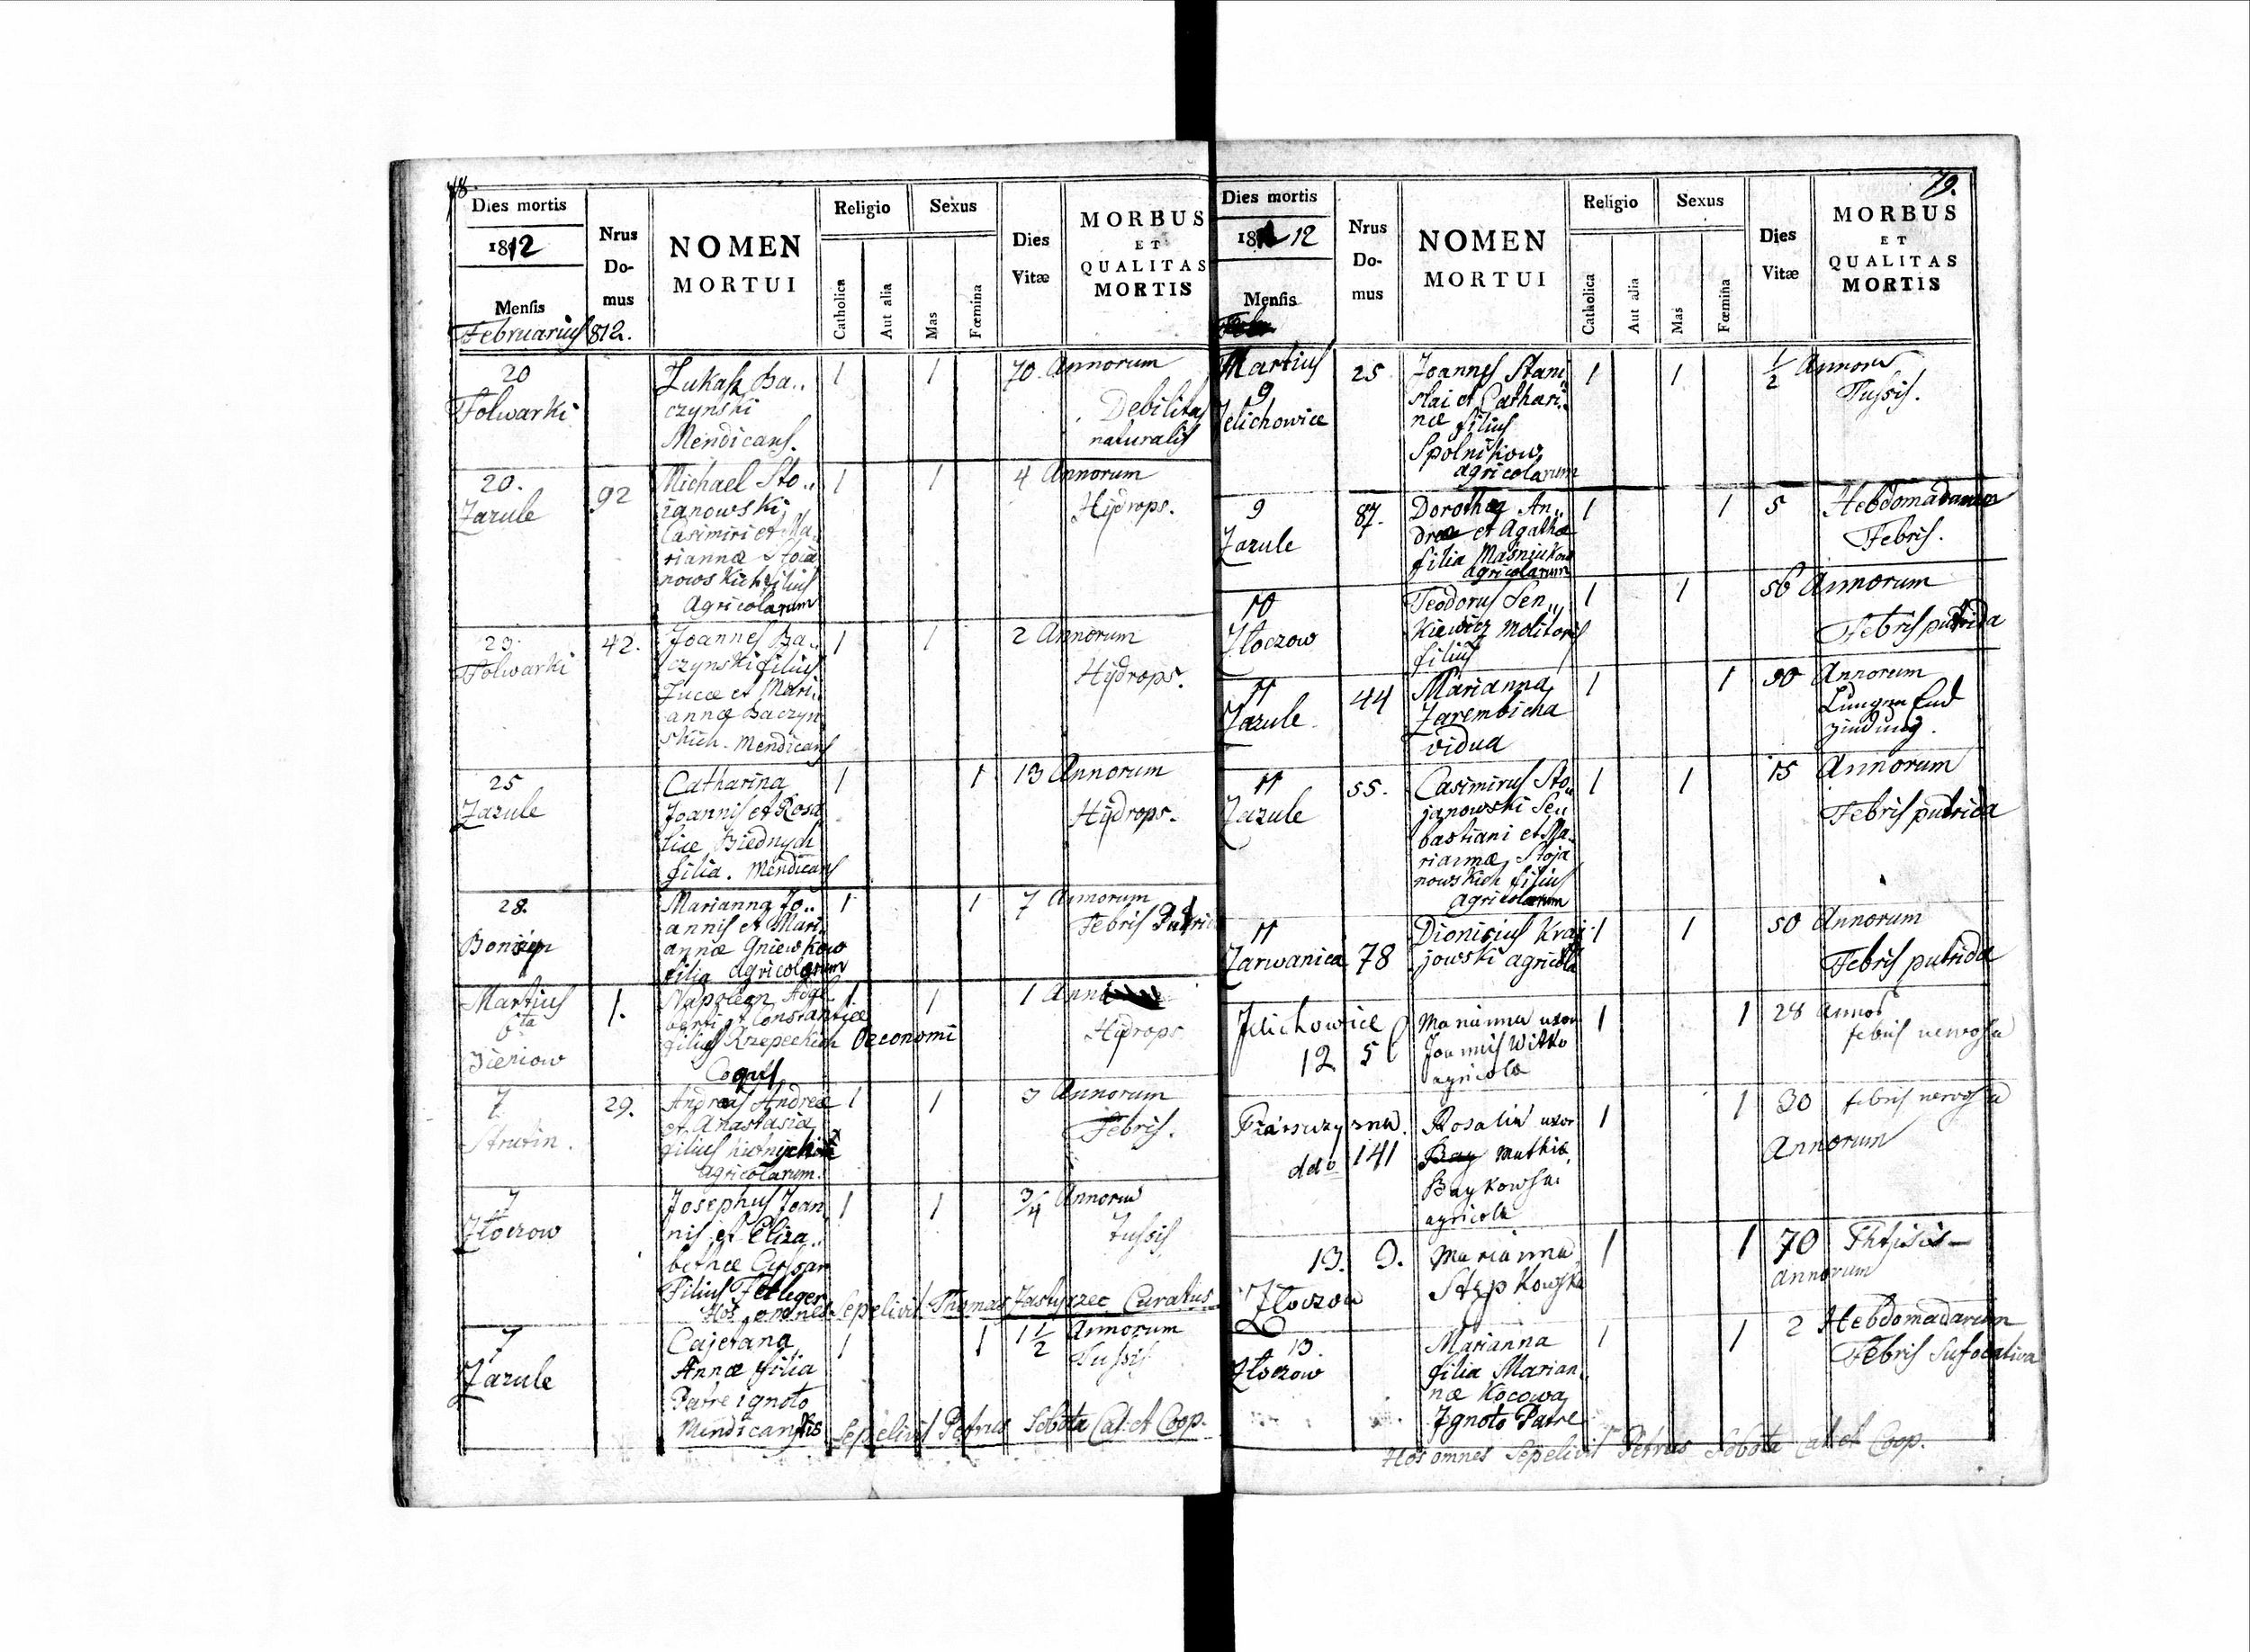 78.
Dies mortis
1812
Mensis
Februarius 812.
Nrus Do- mus
NOMEN
MORTUI
Religio
Catholica
Aut alia
Sexus
Mas
Fœmina
Dies
Vitæ
MORBUS
ET
QUALITAS
MORTIS
20
Folwarki
Lukasz Ba..
czynski
Mendicans.
1 1
70. Annorum
Debilitas
naturalis
20.
Zazule
92
Michael Sto..
ianowski
Casimiri et Ma..
riannæ Stoia
nowskich filius
Agricolarum
1 1
4 Annorum
Hydrops.
23.
Folwarki
42.
Joannes Ba..
czynski filius
Lucæ et Mari..
annæ Baczyn
skich. Mendicans
1 1
2 Annorum
Hydrops.
25
Zazule
Catharina
Joannis et Rosa
liæ Biednych
filia. Mendicans
1 1
13 Annorum
Hydrops.
28.
Marianna Jo..
annis et Mari..
annæ Gniewkow
filia agricolarum
1 1
7 Annorum
Febris
Martius
6ta
1.
Napoleon
et Constantiæ
filius Rzepeckich Oeconomi
1 1
1
Hydrops
7
29.
Andreas Andreæ
et Anastasia
filius
agricolarum.
1 1
3 Annorum
Febris.
7
Złoczow
Josephus Joan
nis et Eliza..
bethæ
Filius
1 1
3/4 Annorum
Tussis
Hos omnes Sepelivit Thomas Zastyrzec Curatus
7
Zazule
Cajetana
Annæ filia
Patre ignoto
Mendicantis
1 1
1 1/2 Annorum
Tussis
Sepelivit Petrus Sobota Cat. et Coop.
79.
Dies mortis
18 12
Mensis
Nrus Do- mus
NOMEN
MORTUI
Religio
Catholica
Aut alia
Sexus
Mas
Fœmina
Dies
Vitæ
MORBUS
ET
QUALITAS
MORTIS
Martius
9
Jelichowice
25
Joannes Stani
slai et Cathari..
næ filius
Spolnikow
agricolarum
1 1
1/2 Annorum
Tussis.
9
Zazule
87.
Dorothea An..
dreæ et Agathæ
filia
agricolarum
1 1
5 Hebdomadarum
Febris.
10
Złoczow
Teodorus Sen..
kiewicz Molitoris
filius
1 1
56 Annorum
Febris putrida
11
Zazule
44
Marianna
Zarembicha
vidua
1 1
90 Annorum
Lungen End
zindung.
11
Zazule
55.
Casimirus Sto..
janowski Seu
bastiani et Ma..
riannæ Stoja
nowskich filius
Agricolarum
1 1
15 Annorum
Febris putrida
11
Zarwanica
78
Dionisius Kraj
jowski agricola
1 1
50 Annorum
Febris putrida
Jelichowice
12 5
Marianna uxor
Joannis Witko
agricolæ
1 1
28 Annor
febris nervosa
ddo 141
Rosalia uxor
Mathiæ
Baykowski
agricolæ
1 1
30 febris nervosa
Annorum
13. 9.
Złoczow
Marianna
Stepkowska
1 1
70 Phtisis
Annorum
13.
Złoczow
Marianna
filia Marian..
næ Kocowa
Ignoto Patre
1 1
2 Hebdomadarum
Febris Sufocativa
Hos omnes Sepelivit Petrus Sobota Cat. et Coop.